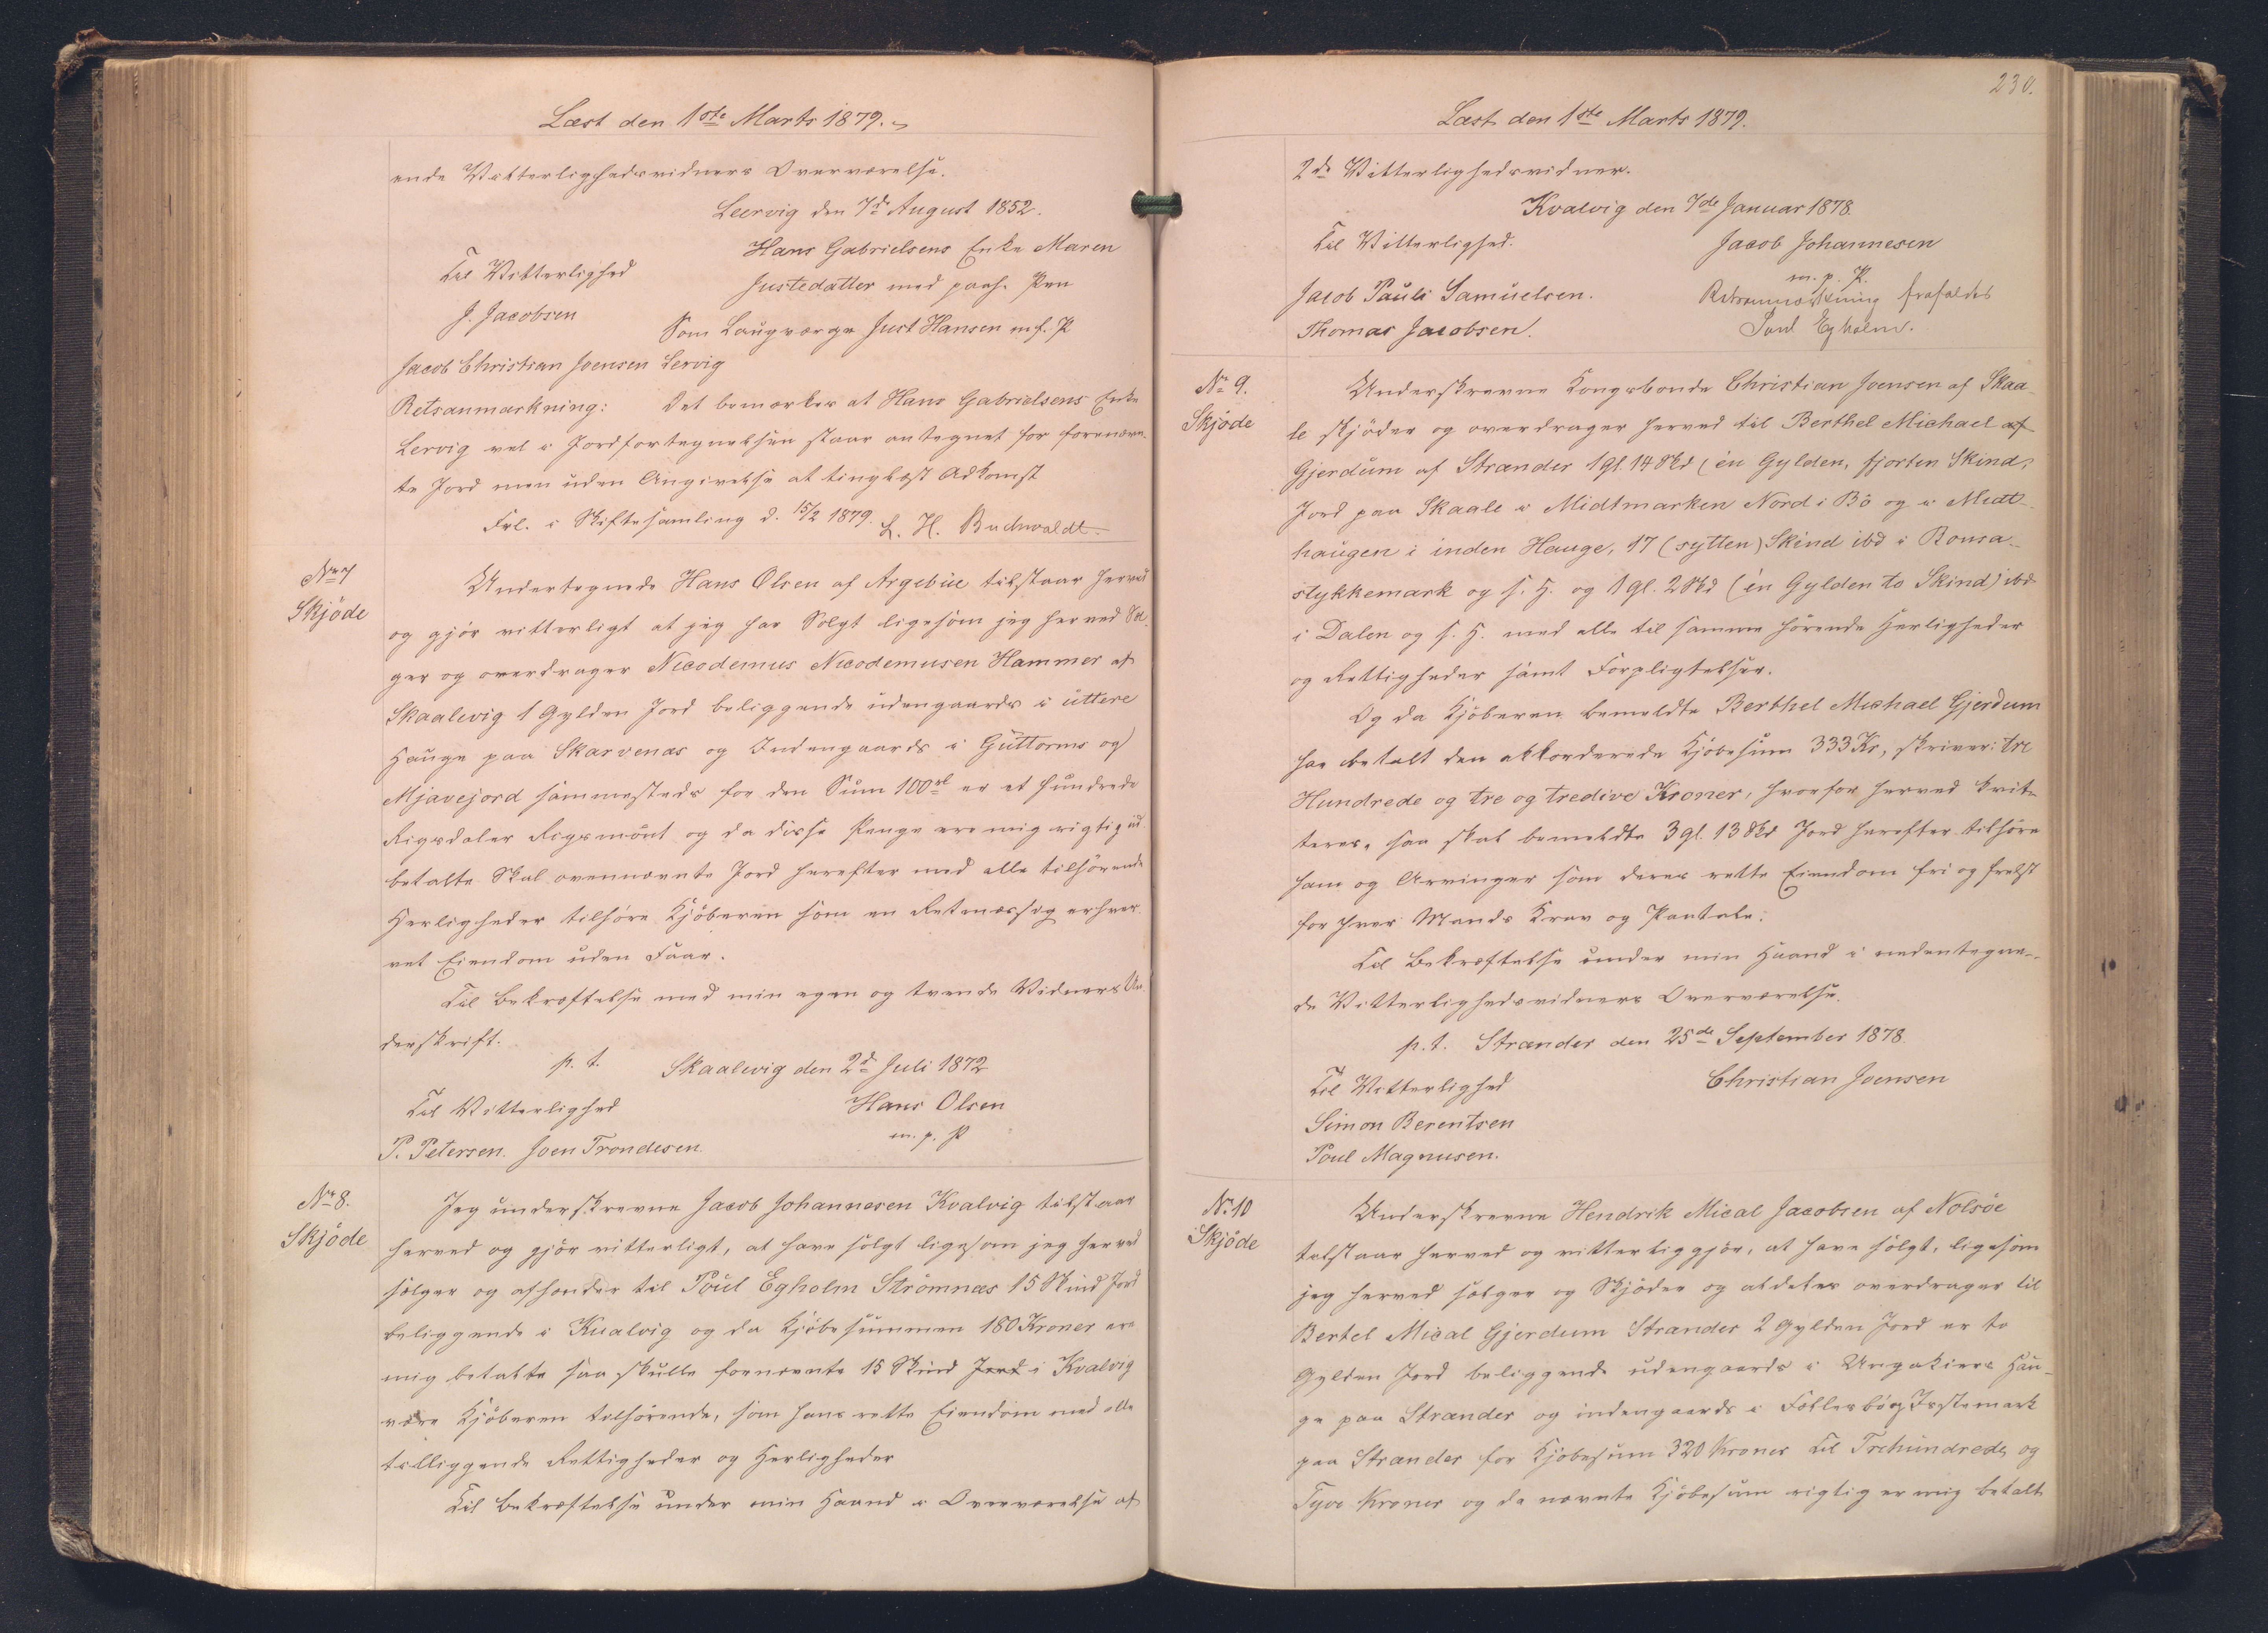 Læst den 1ste Marts 1879.
ende Vitterlighedsvidners Overværelse.
Leervig den 7de August 1852.
Hans Gabrielsens Enke Maren
Til Vitterlighed
Justedatter med paah. Pen
J. Jacobsen
Som Laugværge Just Hansen m. f. P
Jacob Christian Joensen Lervig
Retsanmærkning: Det bemærkes at Hans Gabrielsens Enke
Lervig vel i Jordfortegnelsen staar antegnet for forenævn-
te Jord men uden Angivelse at tinglæst Adkomst
Frl. i Skiftesamling d. 15/2 1879. L. H. Buchwaldt
No 7
Skjöde
Undertegnede Hans Olsen af Argebüe tilstaar herved
og gjör vitterligt at jeg har Solgt ligesom jeg herved Sæl-
ger og overdrager Nicodemus Nicodemusen Hammer af
Skaalevig 1 Gylden Jord beliggende udengaards i üttere
Hauge paa Skarvenæs og Indengaards i Güttorms og
Mjavejord sammesteds for den Sum 100 rd er et hundrede
Rigsdaler Rigsmönt og da disse Penge ere mig rigtig ud-
betalte Skal ovennævnte Jord herefter med alle tilhörende
Herligheder tilhöre Kjöberen som en Retmæssig erhver-
vet Eiendom uden Faar.
Til Bekræftelse med min egen og tvende Vidners Un-
derskrift.
p. t. Skaalevig den 2de Juli 1872
Til Vitterlighed
Hans Olsen
m. p. P
P. Petersen. Joen Trondesen.
No 8.
Skjöde
Jeg underskrevne Jacob Johannesen Kvalvig tilstaar
herved og gjör vitterligt, at have solgt ligesom jeg herved
sælger og afhænder til Poul Egholm Strömnæs 15 Skind Jord
beliggende i Kvalvig og da Kjöbesummen 180 Kroner ere
mig betalte saa skulle fornævnte 15 Skind Jord i Kvalvig
være Kjöberen tilhörende, som hans rette Eiendom med alle
tilliggende Rettigheder og Herligheder
Til Bekræftelse under min Haand i Overværelse af
230.
Læst den 1ste Marts 1879.
2de Vitterlighedsvidner.
Kvalvig den 7de Januar 1878.
Til Vitterlighed.
Jacob Johannesen
m. p. P.
Jacob Pauli Samuelsen.
Retsanmærkning frafaldes
Thomas Jacobsen.
Poul Egholm.
No 9.
Skjöde
Underskrevne Kongsbonde Christian Joensen af Skaa-
le skjöder og overdrager herved til Berthel Michael af
Gjerdum af Strander 1 gl. 14 Skd (én Gylden, fjorten Skind)
Jord paa Skaale i Midtmarken Nord i Bö og i Midt-
haugen i inden Hauge, 17 (sytten) Skind ibd i Ronsa-
stykkemark og s. H. og 1 gl. 2 Skd (én Gylden to Skind) ibd
i Dalen og s. H. med alle til samme hörende Herligheder
og Rettigheder samt Forpligtelser.
Og da Kjöberen bemeldte Berthel Michael Gjerdum
har betalt den akkorderede Kjöbesum 333 Kr, skriver: tre
Hundrede og tre og tredive Kroner, hvorfor herved kvit-
teres, saa skal bemeldte 3 gl. 13 Skd Jord herefter tilhöre
ham og Arvinger som deres rette Eiendom fri og frelst
for hver Mands Krav og Paatale.
Til Bekræftelse under min Haand i nedentegne-
de Vitterlighedsvidners Overværelse.
p. t. Strander den 25de September 1878.
Til Vitterlighed
Christian Joensen
Simon Berentsen
Poul Magnusen.
No 10
Skjöde
Underskrevne Hendrik Mical Jacobsen af Nolsöe
tilstaar herved og vitterliggjör, at have solgt, ligesom
jeg herved sælger og Skjöder og aldeles overdrager til
Bertel Mical Gjerdum Strander 2 Gylden Jord er to
Gylden Jord beliggende udengaards i Hau-
ge paa Strander og indengaards i
paa Strander for Kjöbesum 320 Kroner Til Trehundrede og
Tyve Kroner og da nævnte Kjöbesum rigtig er mig betalt